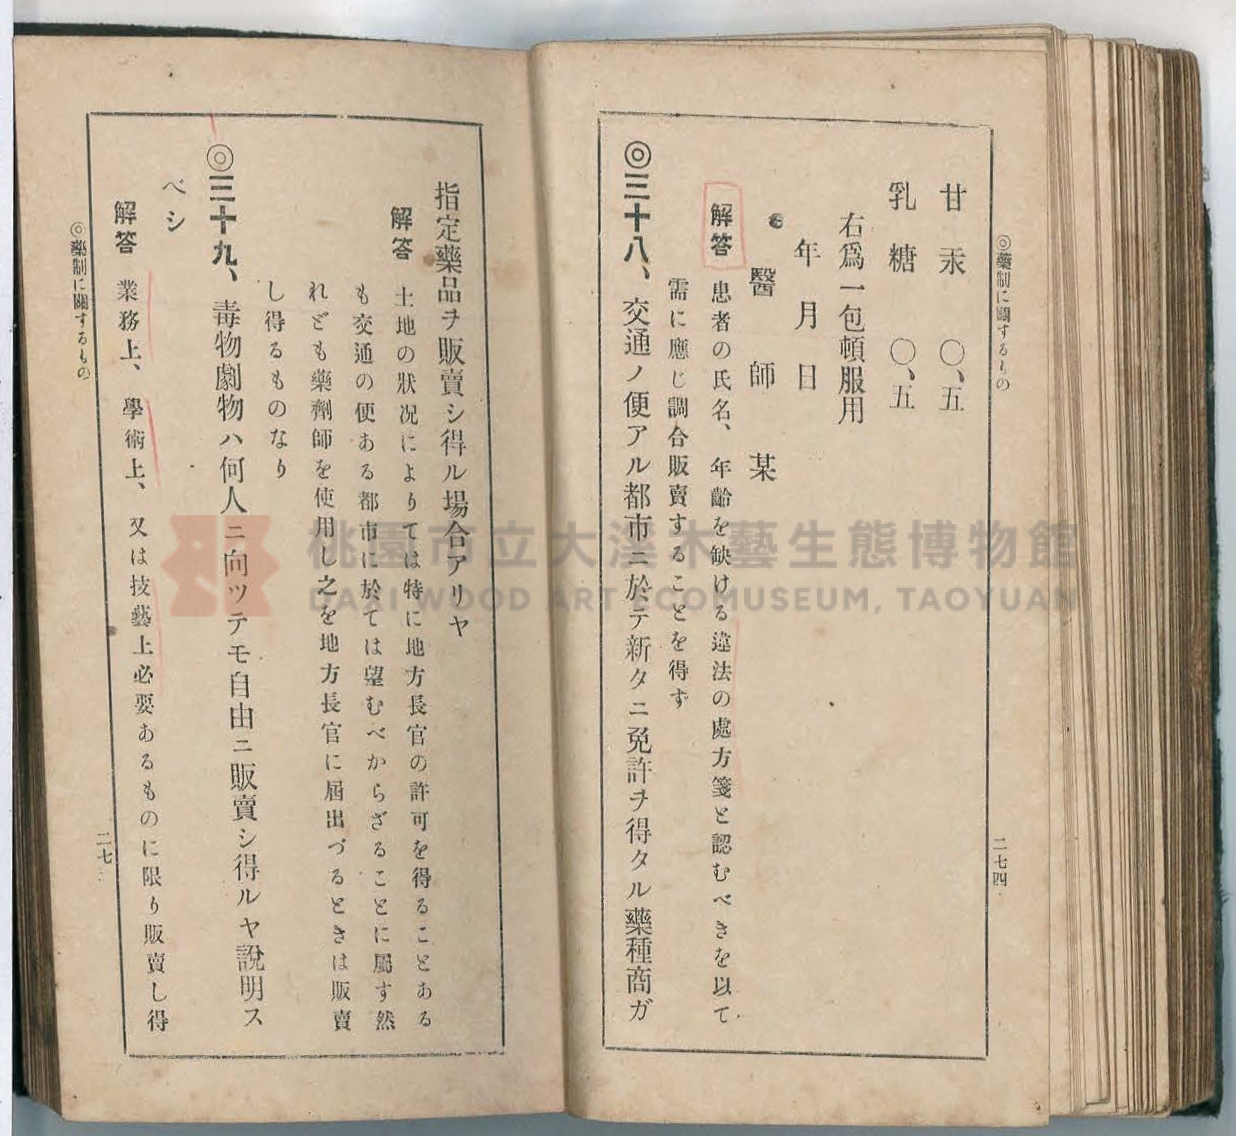 ◎藥制に關するもの
二七四
甘汞 〇、五
乳糖 〇、五
右爲一包頓服用
年月日
醫師某
解答 患者の氏名、年齡を缺ける違法の處方箋と認むべきを以て
需に應じ調合販賣することを得ず
◎三十八、交通ノ便アル都市ニ於テ新タニ免許ヲ得タル藥種商ガ
指定藥品ヲ販賣シ得ル場合アリヤ
解答 土地の狀況によりては特に地方長官の許可を得ることある
も交通の便ある都市に於ては望むべからざることに屬す然
れども藥劑師を使用し之を地方長官に屆出づるときは販賣
し得るものなり
◎三十九、毒物劇物ハ何人ニ向ツテモ自由ニ販賣シ得ルヤ說明ス
ベシ
解答 業務上、學術上、又は技藝上必要あるものに限り販賣し得
◎藥制に關するもの
二七
桃園市立大溪木藝生態博物館
DAXI WOOD ART ECOMUSEUM, TAOYUAN